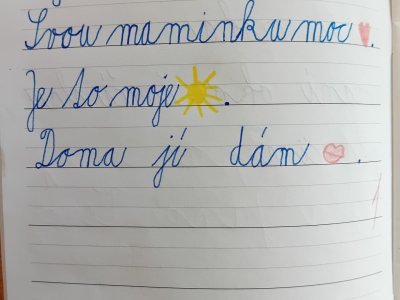 Svou maminku moc .
Je to moje .
Doma jí dám .
1